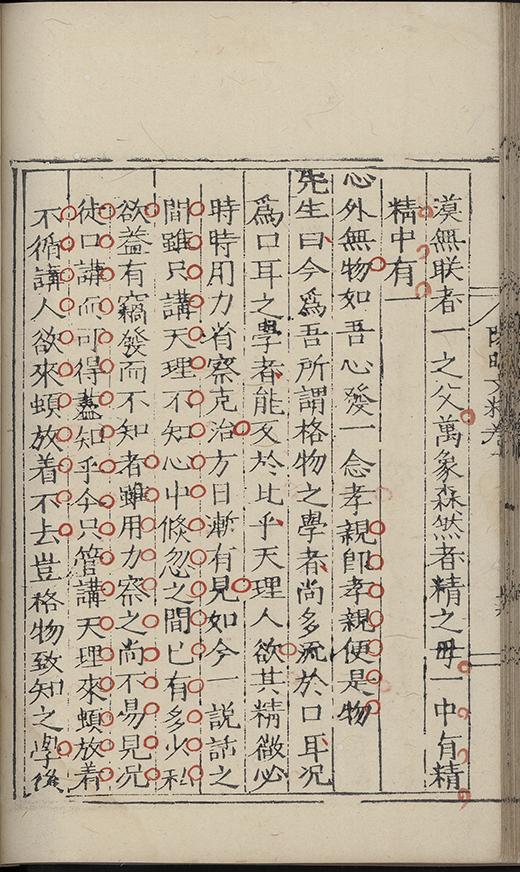 漠無朕者一之父萬象森然者精之母一中有精
精中有一
心外無物如吾心發一念孝親即孝親便是物
先生曰今為吾所謂格物之學者尚多流於口耳况
為口耳之學者能反於此乎天理人欲其精微必
時時用力省察克治方日漸有見如今一說話之
間雖只講天理不知心中倐忽之間已有多少私
欲葢有竊發而不知者雖用力察之尚不易見况
徒口講而可得盡知乎今只管講天理來頓放着
不循講人欲來頓放着不去豈格物致知之學後
陽明文粹卷